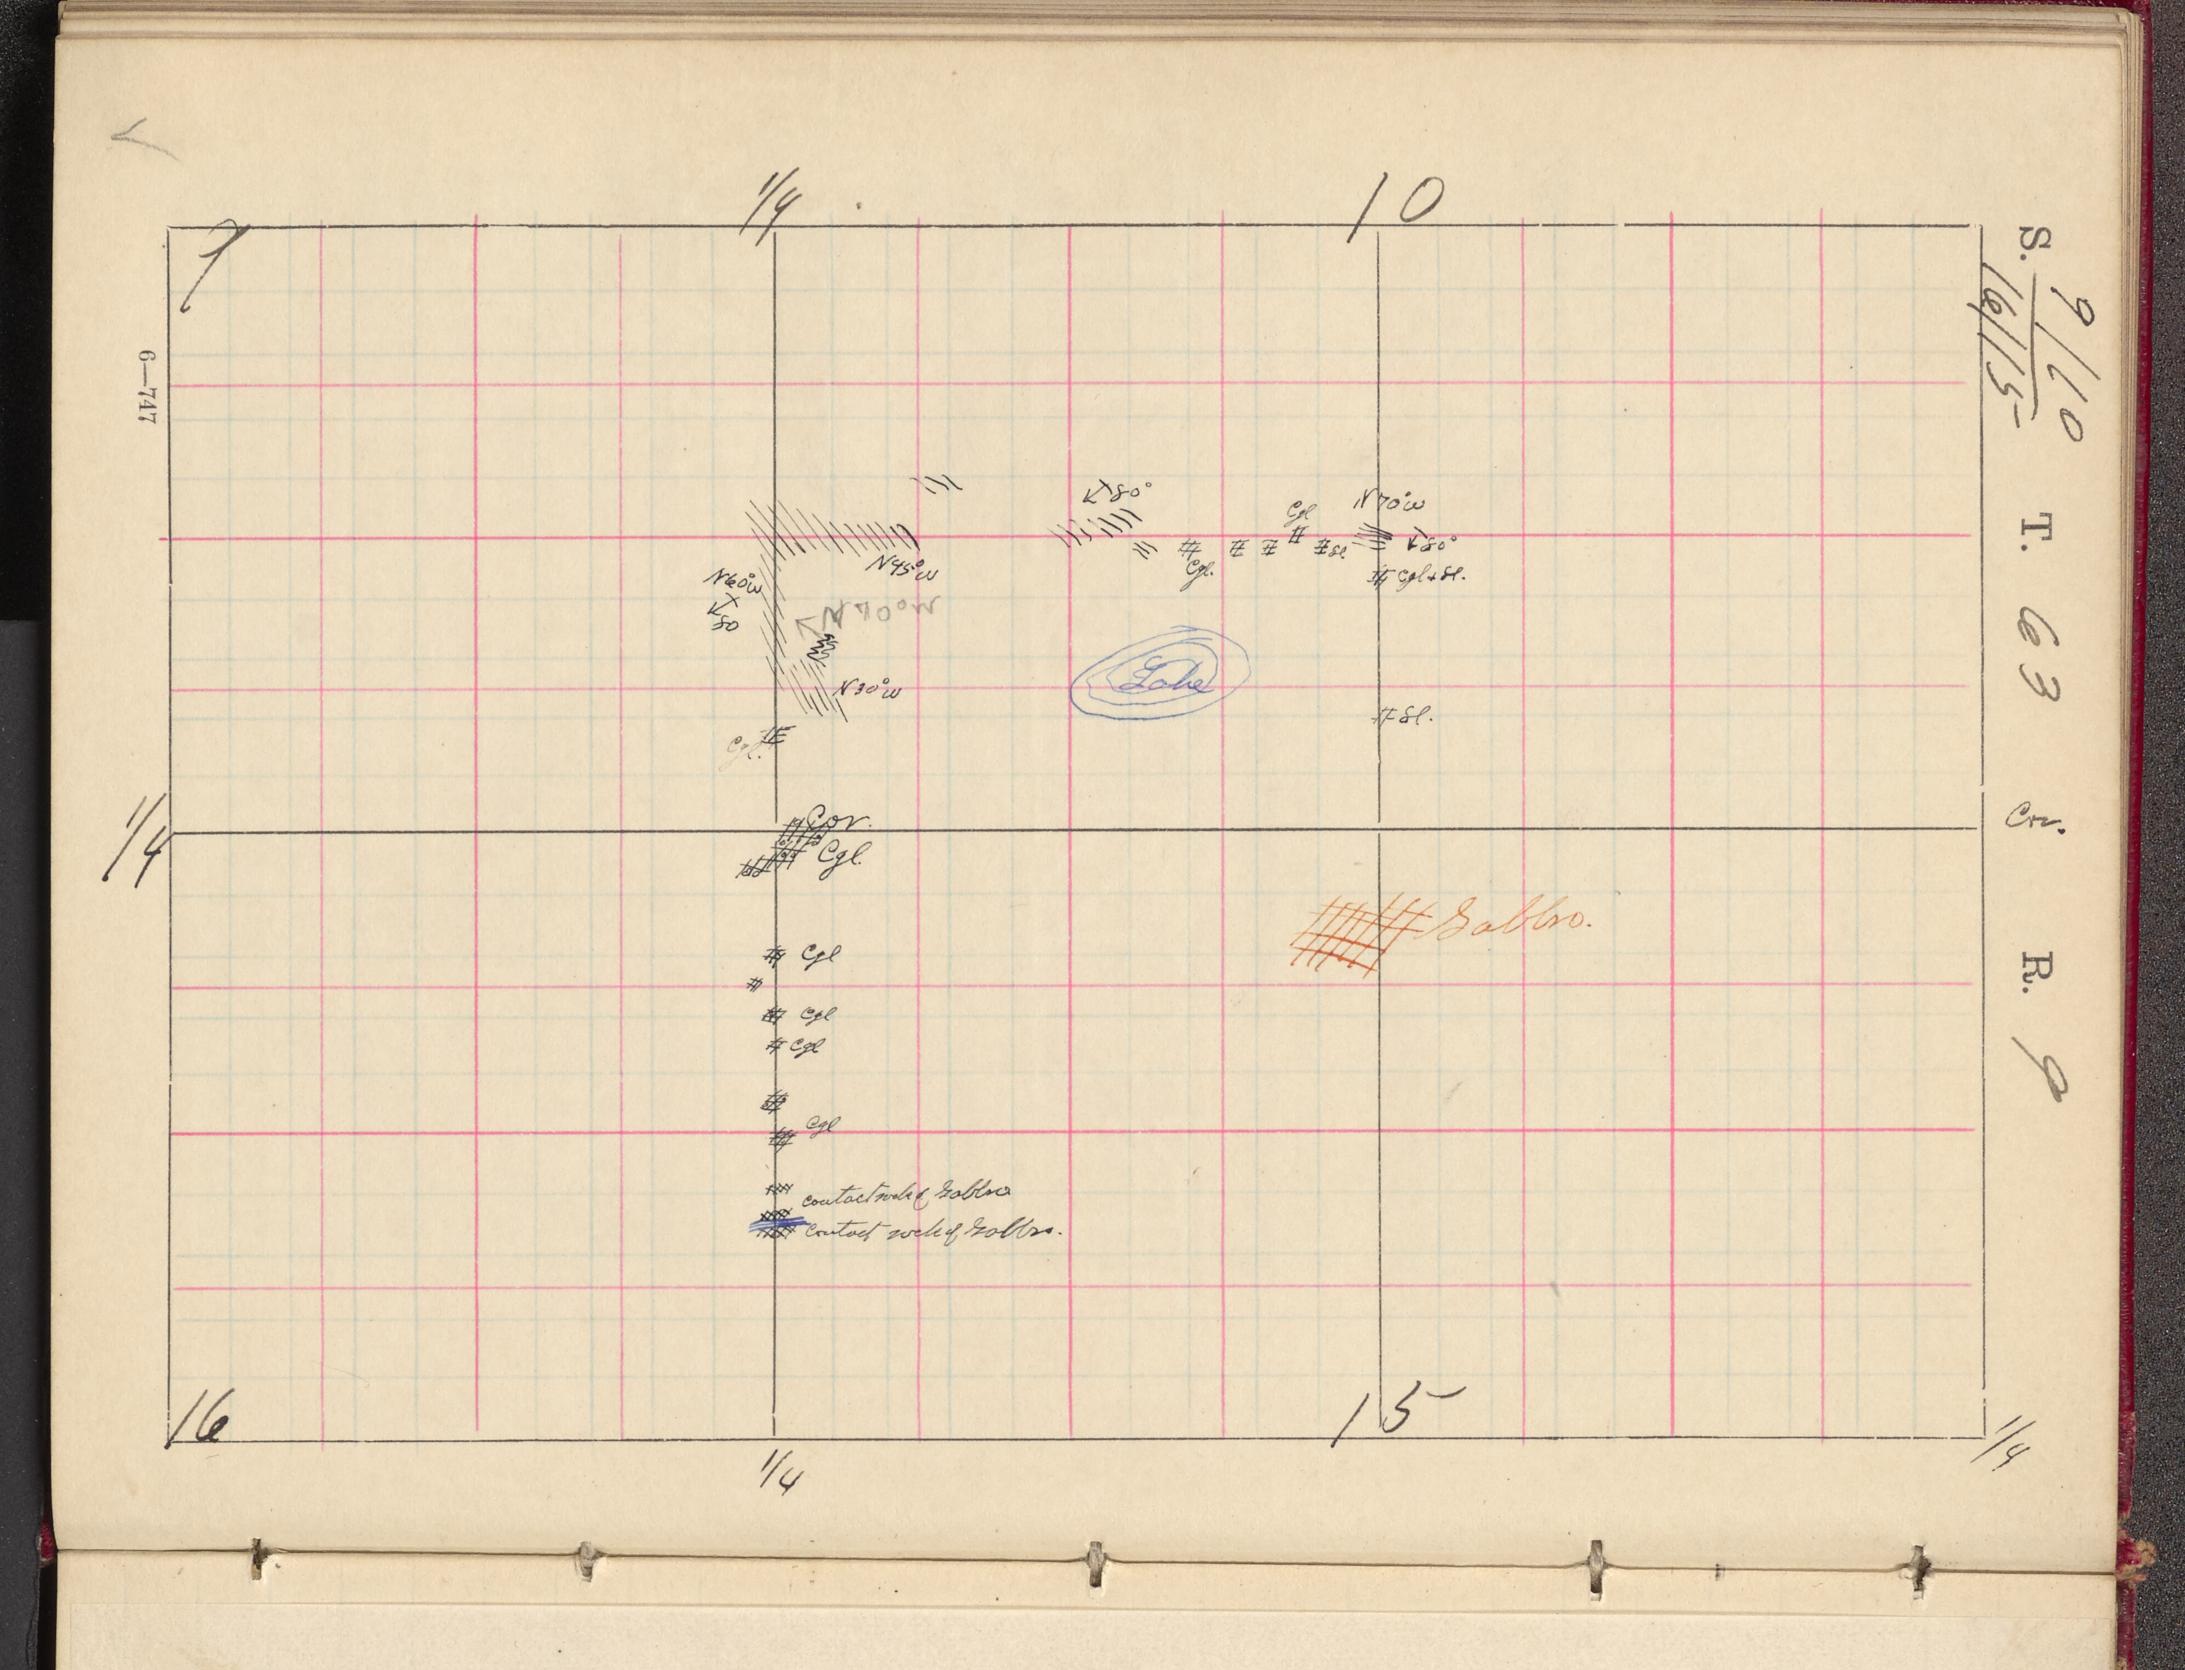 1/4
10
9
S. 9/10
16/15
T. 63
Cor.
R. 9
6—747
80°
N 70° W
Cgl
N 45° W
Cgl.
Sl.
80°
Cgl + Sl.
N 60° W
80
N 30° W
Lake
Sl.
Cgl.
1/4
Cor.
Cgl.
Gabbro.
Cgl
Cgl
Cgl
Cgl
contact rock of Gabbro
Contact rock of Gabbro.
16
15
1/4
1/4